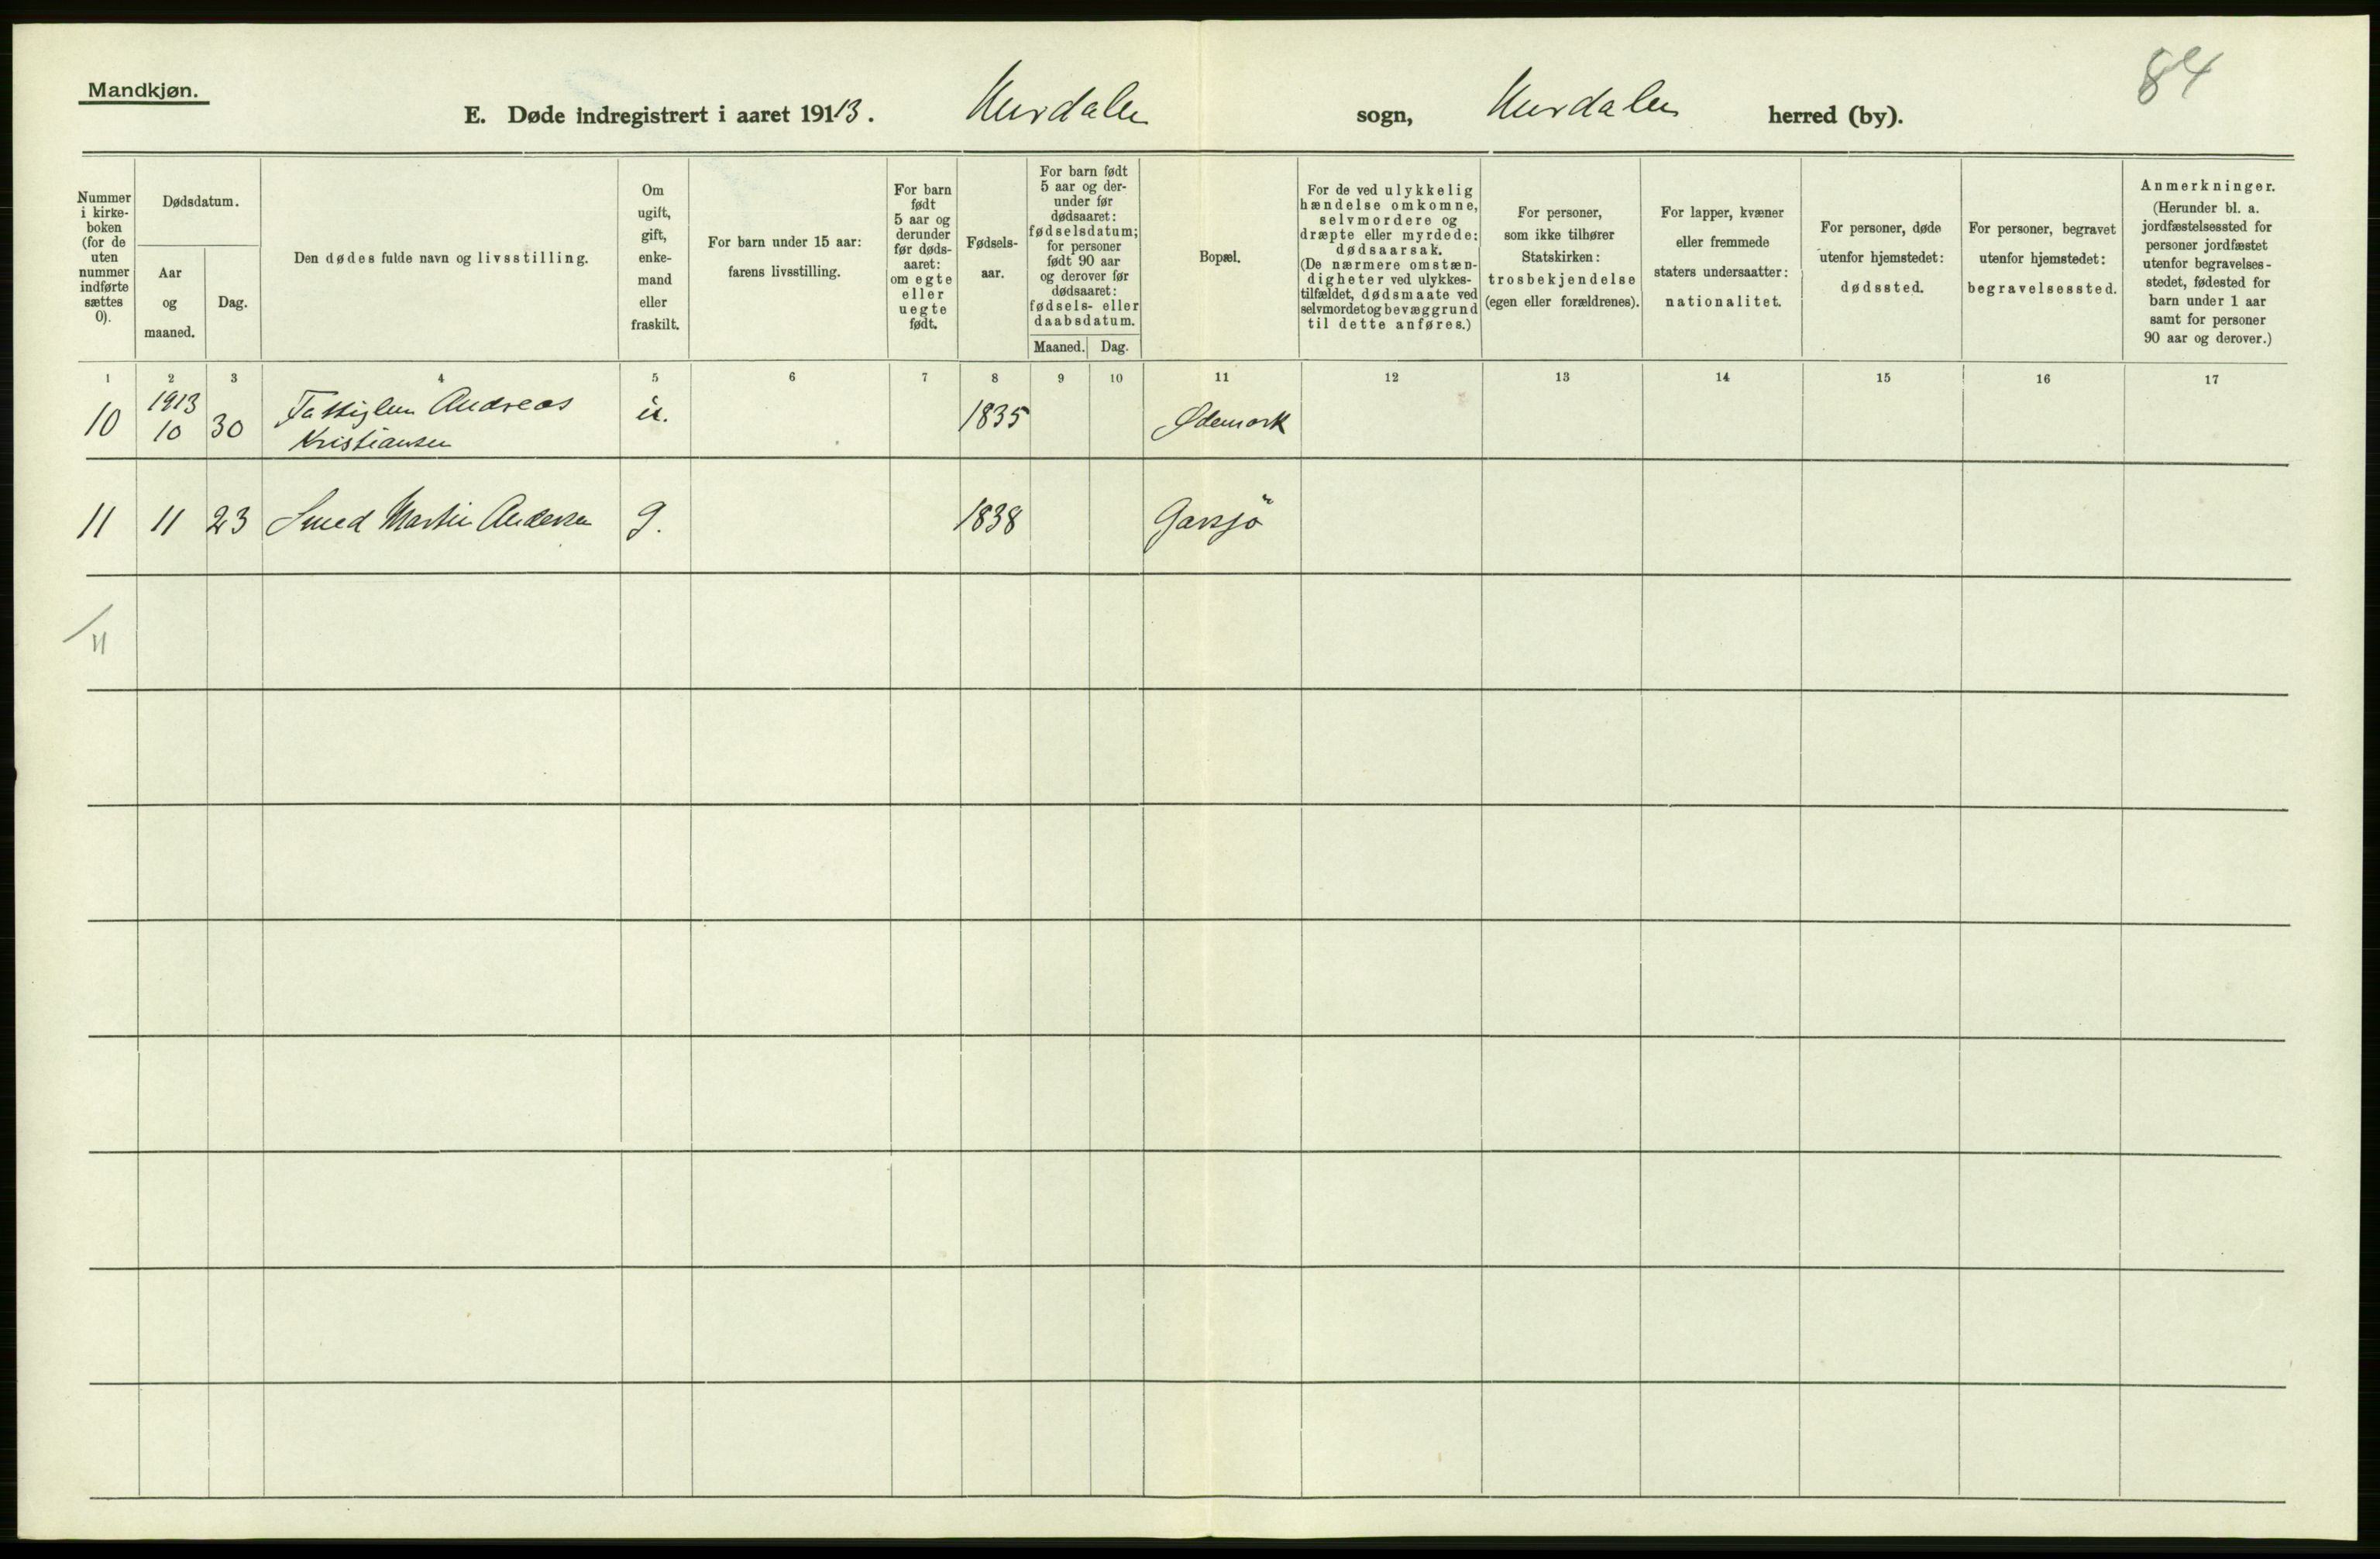 Mandkjøn.
84
E. Døde indregistrert i aaret 1913. Hurdalen sogn, Hurdalen herred (by).
Nummer i kirke- boken (for de uten nummer indførte sættes 0).
Dødsdatum.
Aar og maaned.
Dag.
Den dødes fulde navn og livsstilling.
Om ugift, gift, enke- mand eller fraskilt.
For barn under 15 aar: farens livsstilling.
For barn født 5 aar og derunder før døds- aaret: om egte eller uegte født.
Fødsels- aar.
For barn født 5 aar og der- under før dødsaaret: fødselsdatum; for personer født 90 aar og derover før dødsaaret: fødsels- eller daabsdatum.
Maaned.
Dag.
Bopæl.
For de ved ulykkelig hændelse omkomne, selvmordere og dræpte eller myrdede: dødsaarsak. (De nærmere omstæn- digheter ved ulykkes- tilfældet, dødsmaate ved selvmordet og bevæggrund til dette anføres.)
For personer, som ikke tilhører Statskirken: trosbekjendelse (egen eller forældrenes).
For lapper, kvæner eller fremmede staters undersaatter: nationalitet.
For personer, døde utenfor hjemstedet: dødssted.
For personer, begravet utenfor hjemstedet: begravelsessted.
Anmerkninger. (Herunder bl. a. jordfæstelsessted for personer jordfæstet utenfor begravelses- stedet, fødested for barn under 1 aar samt for personer 90 aar og derover.)
1 2 3 4 5 6 7 8 9 10 11 12 13 14 15 16 17
1913
10 10 30 Fattiglem Andreas u. 1835 Ødemork
Kristiansen
11 11 23 Smed Martin Andersen g. 1838 Garsjø
/11